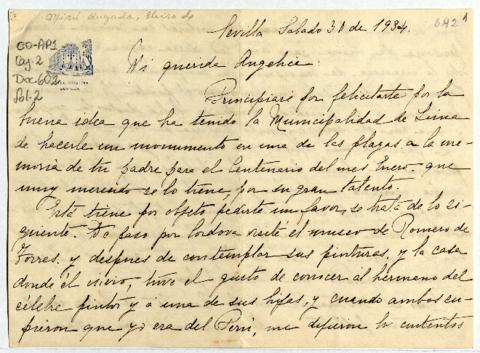 Miró Quesada, Elvira de
Sevilla Sabado 30 de 1934.
642
CO-AP1
Caj. 2
Doc. 602
Fol. 2
SEVILLA
Mi querida Angelica:
Principiaré por felicitarte por la
buena idea que ha tenido la Municipalidad de Lima
de hacerle un monumento en una de las plazas a la me-
moria de tu padre para el Centenario del mes Enero, que
muy merecido se lo tiene por su gran talento.
Esta tiene por objeto pedirte un favor, se trata de lo si-
guiente. De paso por Cordova visité el museo de Romero de
Torres, y despues de contemplar sus pinturas, y la casa
donde él vivio, tuve el gusto de conocer al hermano del
célebre pintor y á una de sus hijas, y cuando ambos su-
pieron que yo era del Perú, me dijeron lo contentos